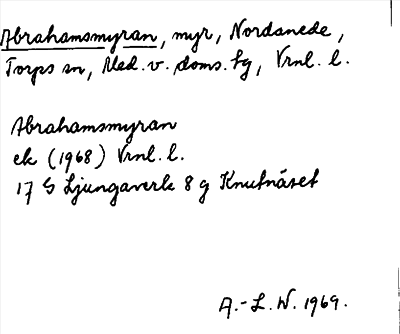 Abrahamsmyran, myr, Nordanede,
Torps sn, Med. v. doms. hg, Vrnl. l.
Abrahamsmyran
ek (1968) Vrnl. l.
17 G Ljungaverk 8 g Knutnäset
A.-L. W. 1969.